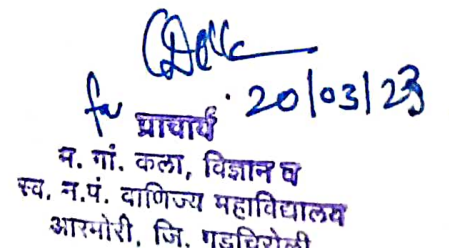 for 20/03/23
प्राचार्य
म. गां. कला, विज्ञान व
स्व. न.पं. वाणिज्य महाविद्यालय
आरमोरी, जि. गडचिरोली